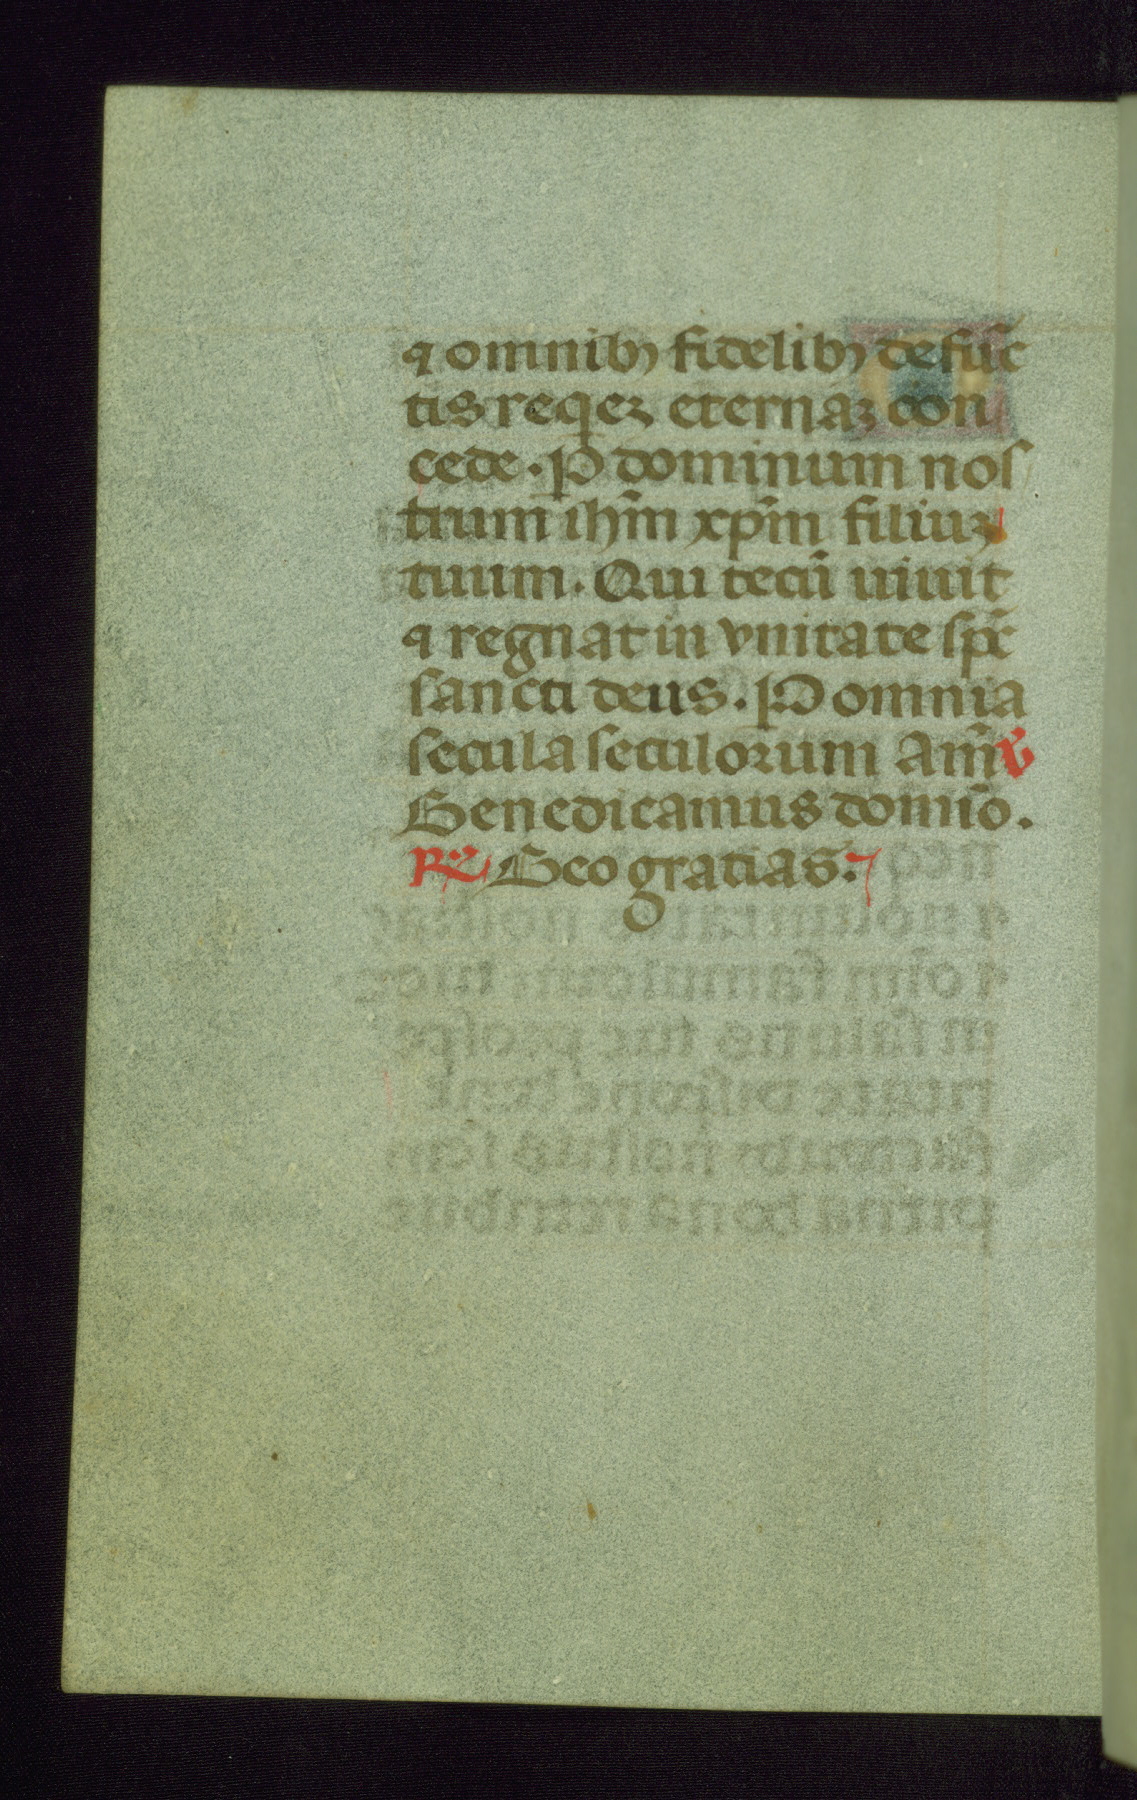 ⁊ omnibꝯ fidelibꝯ defūc
tis reqeꝫ eternaꝫ cōn
cede. P dominum noſ
trum ihm̄ xpm̄ filiuꝫ
tuum. Qui tecū uiuit
⁊ regnat in vnitate ſpc̄
ſancti deus. P omnia
ſecula ſeculorum Am̄ ℣
Benedicamus domīo.
℟ Deo gratias.